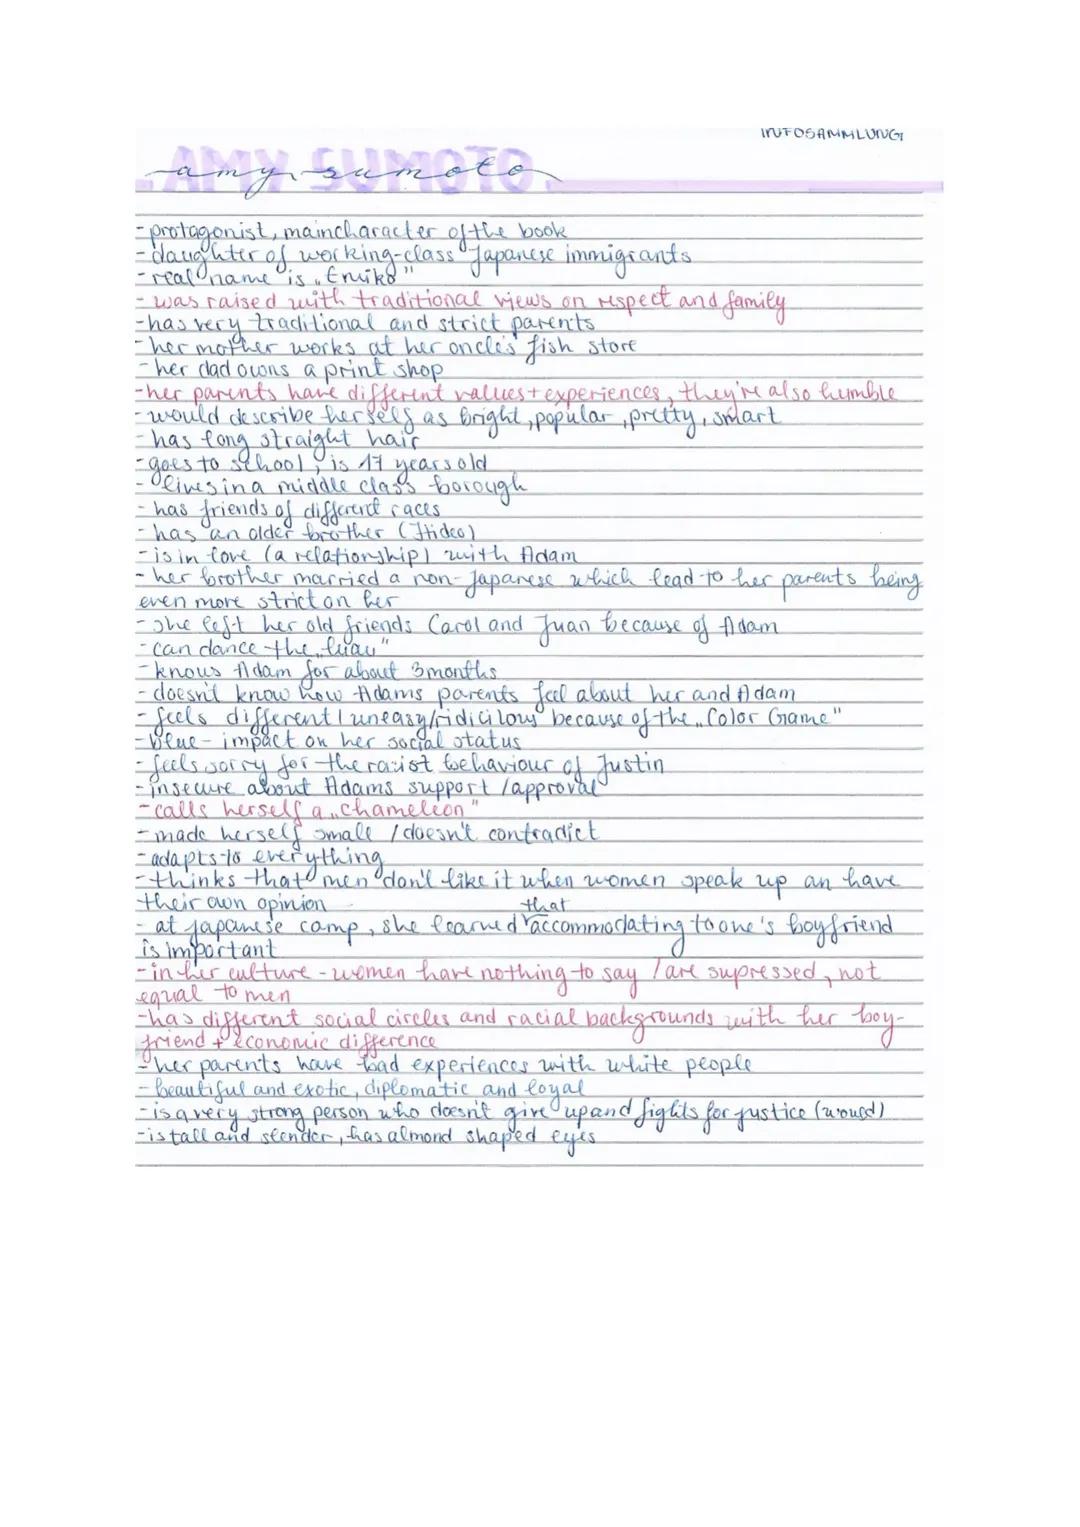 INFOSAMMLUNG
AMY SUMOTO
amy sumoto
- protagonist, maincharacter of the book
- daughter of working-class Japanese immigrants
- real name is „Emiko"
- was raised with traditional views on respect and family
- has very traditional and strict parents
- her mother works at her oncle's fish store
- her dad owns a print shop
- her parents have different values + experiences, they're also humble
- would describe herself as bright, popular, pretty, smart
- has long straight hair
- goes to school, is 17 years old
- lives in a middle class borough
- has friends of different races
- has an older brother (Hideo)
- is in love (a relationship) with Adam
- her brother married a non-Japanese which lead to her parents being
even more strict on her
- she left her old friends Carol and Juan because of Adam
- can dance the „luau"
- knows Adam for about 3 months
- doesn't know how Adams parents feel about her and Adam
- feels different / uneasy/ridicilous because of the „Color Game"
- blue - impact on her social status
- feels sorry for the racist behaviour of Justin
- insecure about Adams support / approval
- calls herself a „chameleon"
- made herself small / doesn't contradict
- adapts to everything
- thinks that men don't like it when women speak up an have
their own opinion
that
- at japanese camp, she learned accommodating to one's boyfriend
is important
- in her culture - women have nothing to say / are supressed, not
equal to men
- has different social circles and racial backgrounds with her boy-
friend + economic difference
- her parents have bad experiences with white people
- beautiful and exotic, diplomatic and loyal
- is a very strong person who doesn't give up and fights for justice
- is tall and slender, has almond shaped eyes